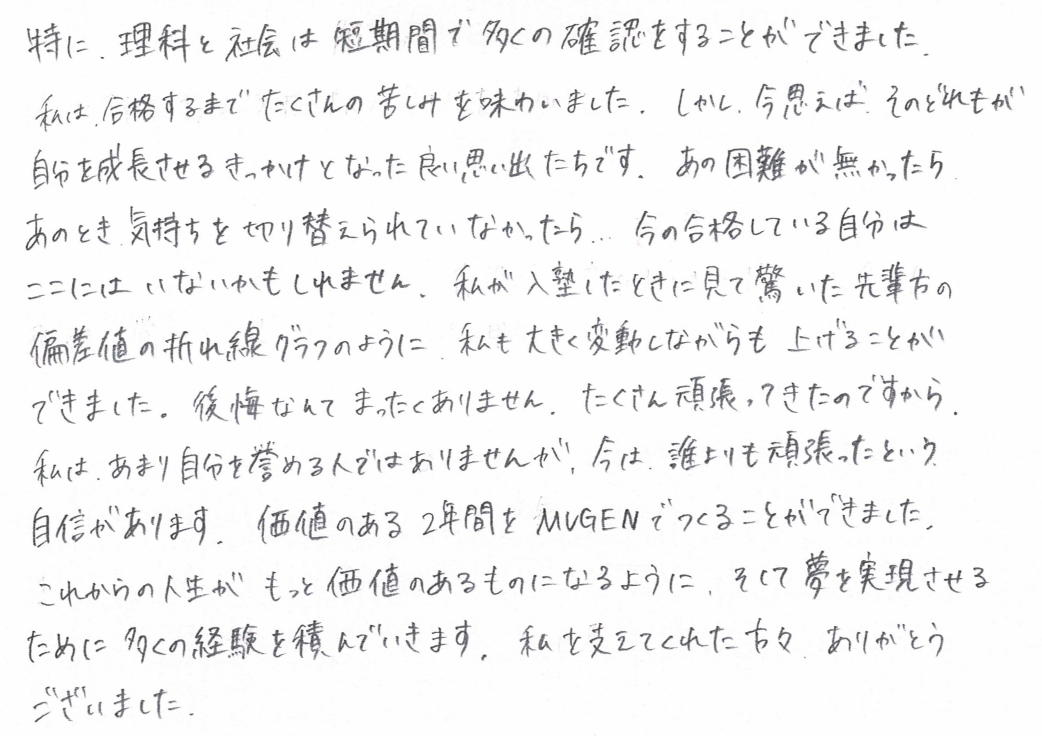 特に、理科と社会は短期間で多くの確認をすることができました。
私は、合格するまでたくさんの苦しみを味わいました。しかし、今思えば、そのどれもが
自分を成長させるきっかけとなった良い思い出たちです。あの困難が無かったら、
あのとき気持ちを切り替えられていなかったら…今の合格している自分は
ここにはいないかもしれません。私が入塾したときに見て驚いた先輩方の
偏差値の折れ線グラフのように、私も大きく変動しながらも上げることが
できました。後悔なんてまったくありません。たくさん頑張ってきたのですから。
私は、あまり自分を誉める人ではありませんが、今は、誰よりも頑張ったという
自信があります。価値のある2年間をMUGENでつくることができました。
これからの人生がもっと価値のあるものになるように、そして夢を実現させる
ために多くの経験を積んでいきます。私を支えてくれた方々、ありがとう
ございました。